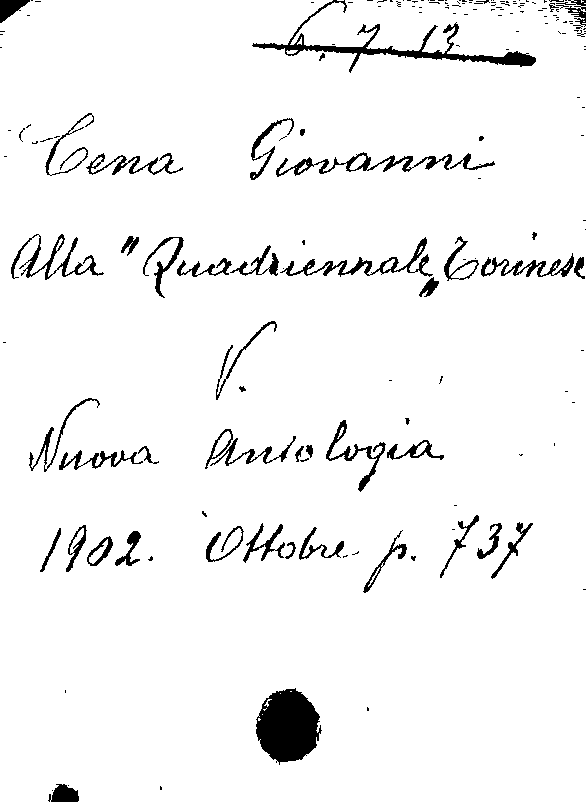 6. 7. 13
Cena Giovanni
Alla "Quadriennale„ Torinese
V.
Nuova Antologia
1902. Ottobre p. 737